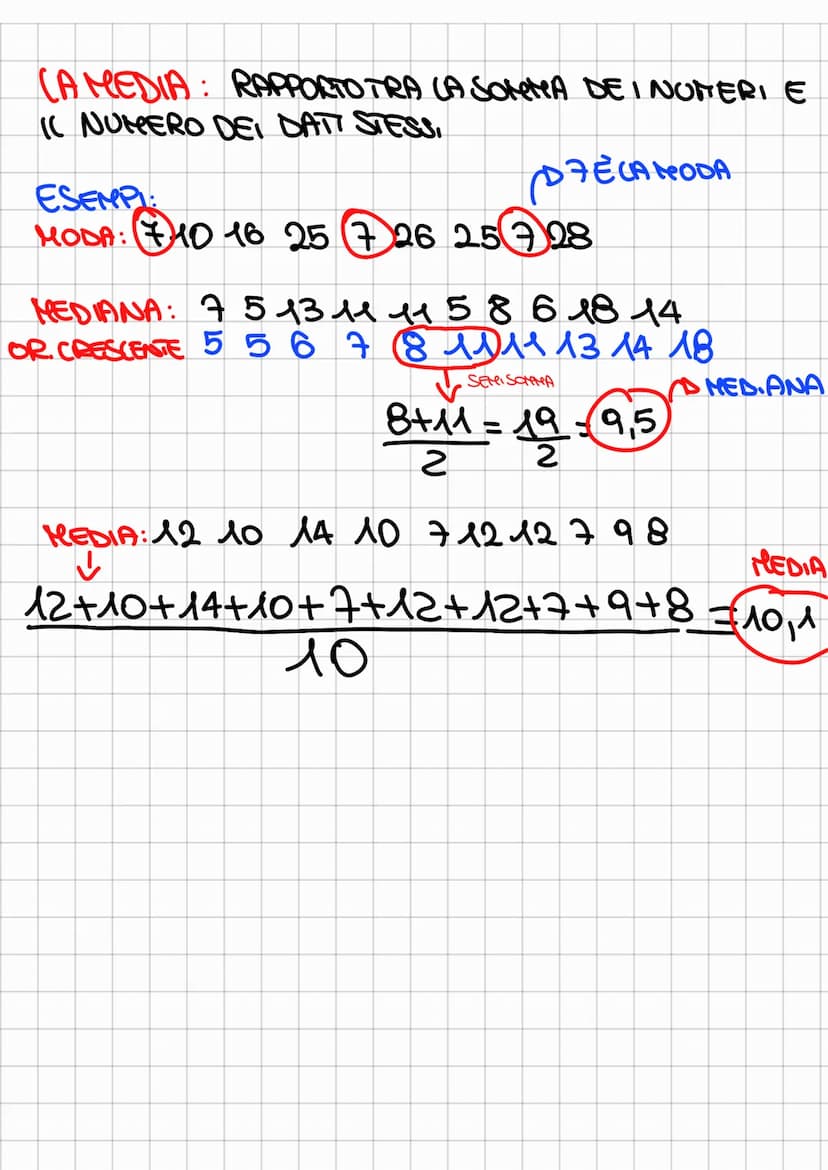 LA MEDIA: RAPPORTO TRA LA SOMMA DEI NUMERI E
IL NUMERO DEI DATI STESSI.
7 È LA MODA
ESEMPI:
MODA: 7 10 16 25 7 26 25 7 28
MEDIANA: 7 5 13 11 11 5 8 6 18 14
OR. CRESCENTE 5 5 6 7 8 11 11 13 14 18
SEMISOMMA
MEDIANA
8+11 = 19 = 9,5
2 2
MEDIA: 12 10 14 10 7 12 12 7 9 8
MEDIA
12+10+14+10+7+12+12+7+9+8 = 10,1
10